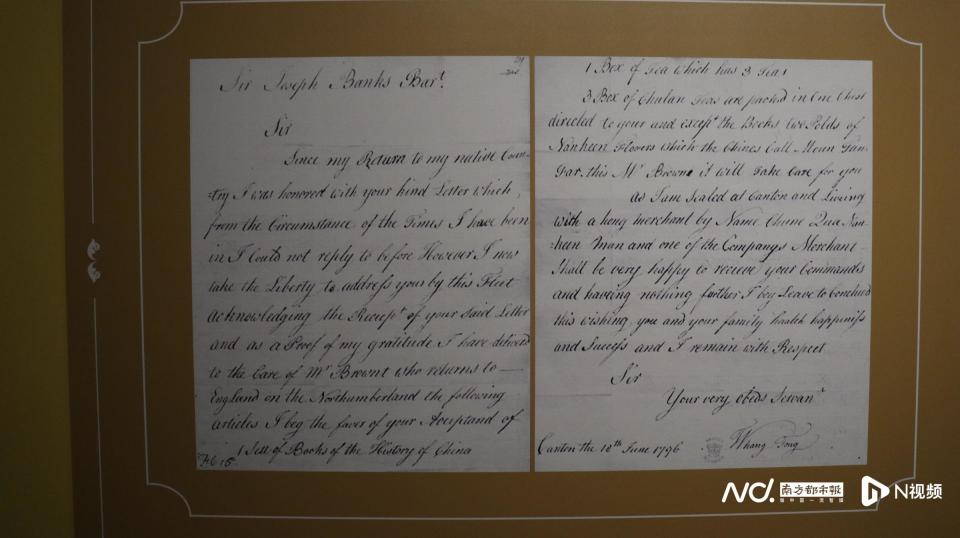 Sir Joseph Banks Bart.
Sir
Since my Return to my native Coun-
-try I was honored with your kind Letter which,
from the Circumstance, of the Times I have been
in I Could not reply to before However I now
take the Liberty to address you by this Fleet
acknowledging the Receipt of your said Letter
and as a Proof of my gratitude I have deliverd
to the Care of Mr Brownt who returns to
England on the Northumberland the following
articles I beg the favor of your Acceptand of
1 Sett of Books of the History of China
1 Box of Tea which has 3 Teas
3 Box of Chulan Teas are packed in One Chest
directed to your and except the Books two Polds of
Nankeen Flowers which the Chines Call Moun Tan
Far. this Mr Browne it will Take Care for you
as I am Sealed at Canton and Liveing
with a hong merchant by Name Chune Qua Nan
keen Man and one of the Companys Merchant
Shall be very happy to recieve your Commands
and haveing nothing further I beg Leave to Conclud
this wishing you and your family health happiness
and Success and I remain with Respect
Sir
Your very obeds Servant
Canton the 18th June 1796 Whang Tong
ND. 南方都市报 N视频